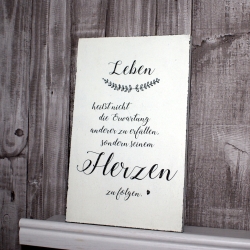 Leben
heißt nicht
die Erwartung
anderer zu erfüllen,
sondern seinem
Herzen
zu folgen.